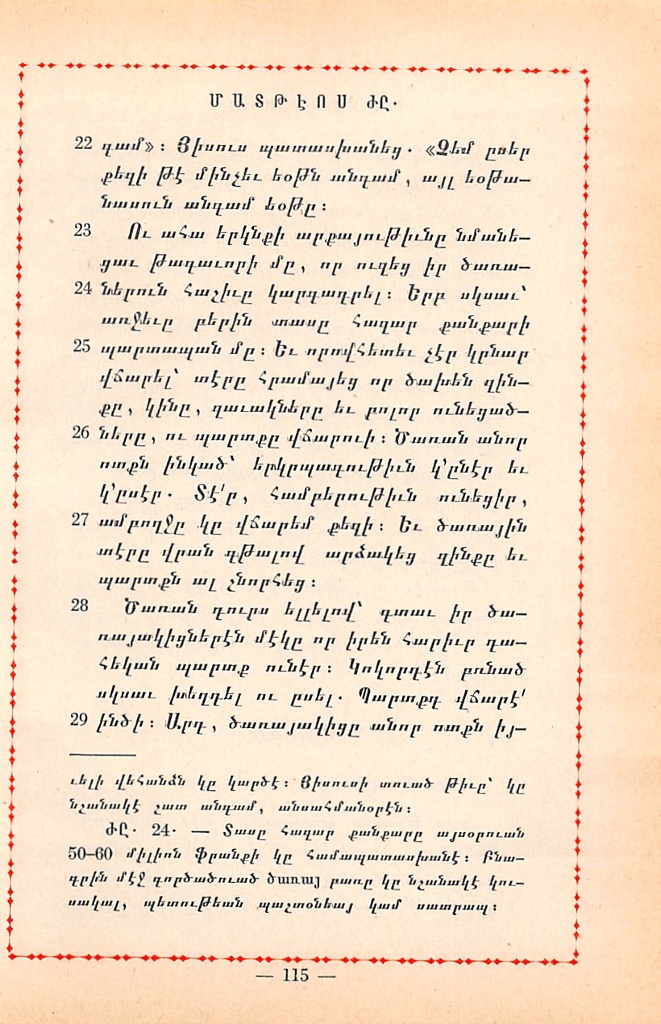 ՄԱՏԹԷՈՍ ԺԸ.
22 գամ»: Յիսուս պատասխանեց. «Չեմ ըսեր
քեզի թէ մինչեւ եօթն անգամ, այլ եօթա-
նասուն անգամ եօթը:
23 Ու ահա երկնքի արքայութիւնը նմանե-
ցաւ թագաւորի մը, որ ուզեց իր ծառա-
24 ներուն հաշիւը կարգադրել: Երբ սկսաւ՝
առջեւը բերին տասը հազար քանքարի
25 պարտապան մը: Եւ որովհետեւ չէր կրնար
վճարել՝ տէրը հրամայեց որ ծախեն զին-
քը, կինը, զաւակները եւ բոլոր ունեցած-
26 ները, ու պարտքը վճարուի: Ծառան անոր
ոտքն ինկած՝ երկրպագութիւն կ՚ընէր եւ
կ՚ըսէր. Տէ՛ր, համբերութիւն ունեցիր,
27 ամբողջը կը վճարեմ քեզի: Եւ ծառային
տէրը վրան գթալով արձակեց զինքը եւ
պարտքն ալ շնորհեց:
28 Ծառան դուրս ելլելով՝ գտաւ իր ծա-
ռայակիցներէն մէկը որ իրեն հարիւր դա-
հեկան պարտք ունէր: Կոկորդէն բռնած
սկսաւ խեղդել ու ըսել. Պարտքդ վճարէ՛
29 ինծի: Արդ, ծառայակիցը անոր ոտքն իյ-
ւելի վեհանձն կը կարծէ: Յիսուսի տուած թիւը՝ կը
նշանակէ շատ անգամ, անսահմանօրէն:
ԺԸ. 24. — Տասը հազար քանքարը այսօրուան
50–60 միլիոն ֆրանքի կը համապատասխանէ: Բնա-
գրին մէջ գործածուած ծառայ բառը կը նշանակէ կու-
սակալ, պետութեան պաշտօնեայ կամ սատրապ:
— 115 —